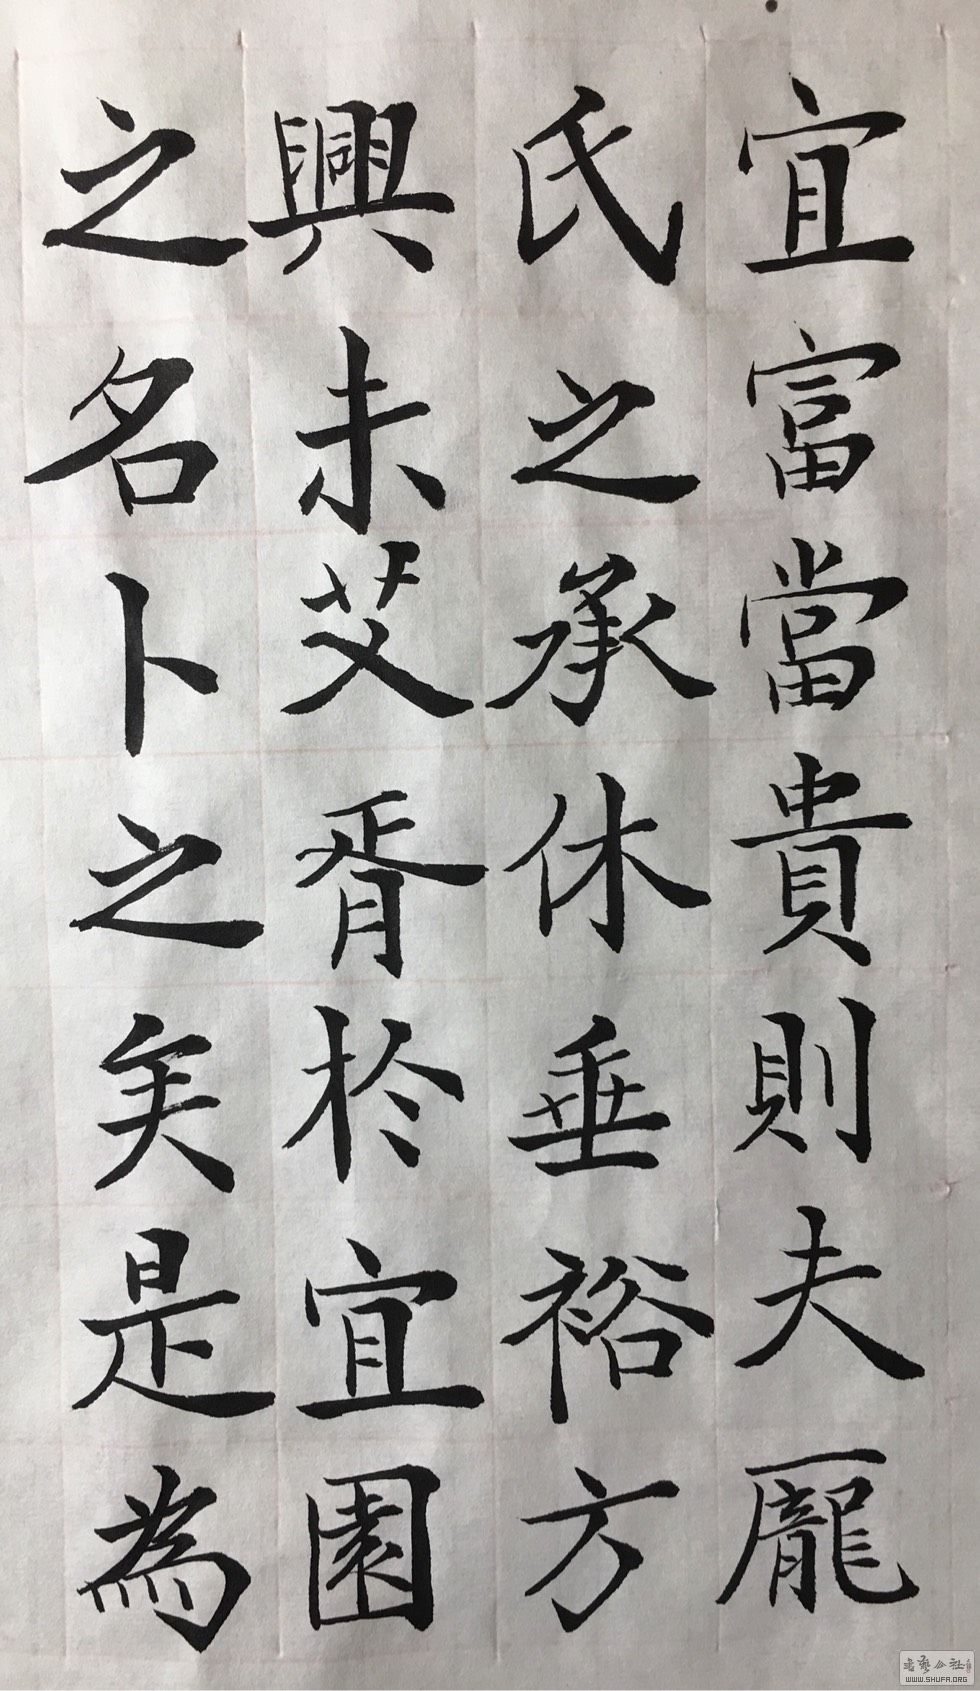 宜富當貴則夫龎
氏之承休垂裕方
興未艾胥於宜園
之名卜之矣是為
书艺公社
WWW.SHUFA.ORG